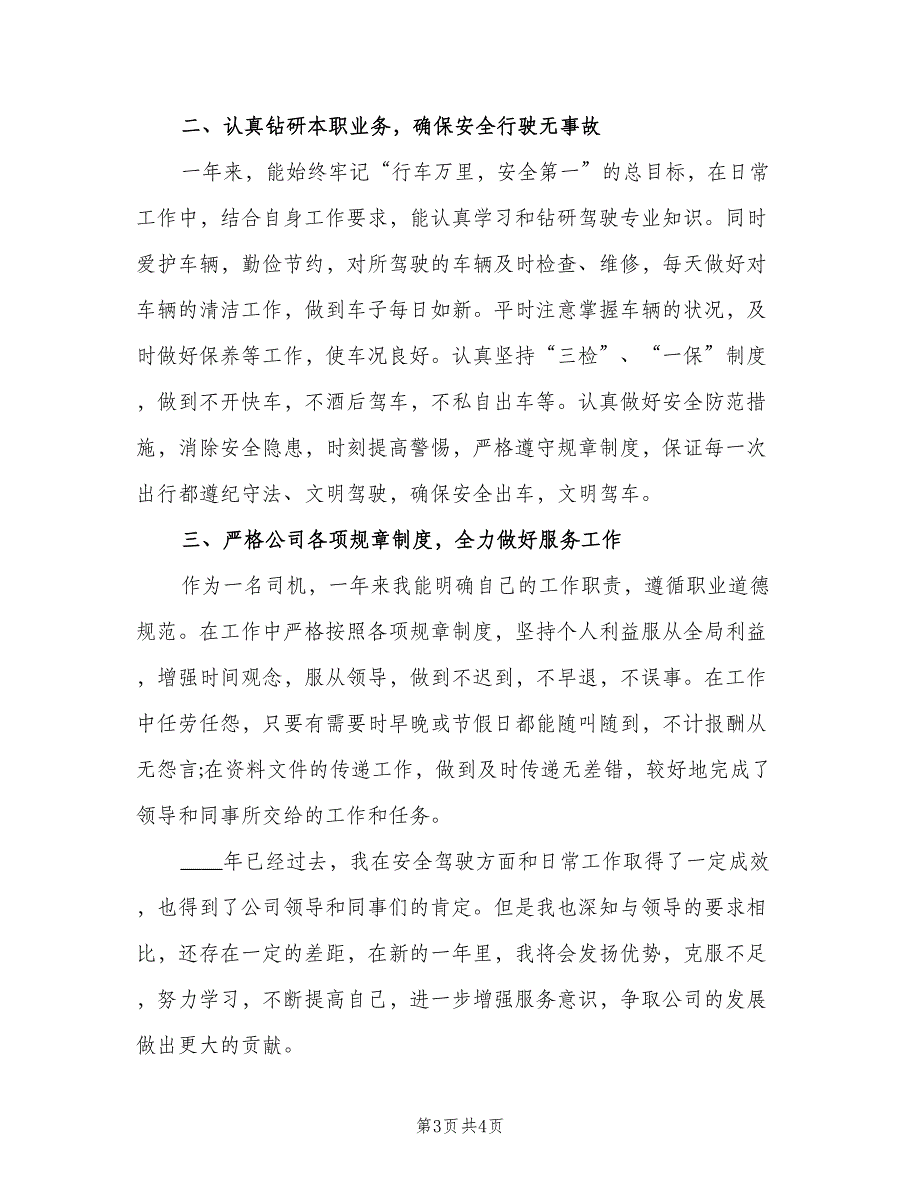 二、认真钻研本职业务，确保安全行驶无事故
一年来，能始终牢记“行车万里，安全第一”的总目标，在日常
工作中，结合自身工作要求，能认真学习和钻研驾驶专业知识。同时
爱护车辆，勤俭节约，对所驾驶的车辆及时检查、维修，每天做好对
车辆的清洁工作，做到车子每日如新。平时注意掌握车辆的状况，及
时做好保养等工作，使车况良好。认真坚持“三检”、“一保”制度
，做到不开快车，不酒后驾车，不私自出车等。认真做好安全防范措
施，消除安全隐患，时刻提高警惕，严格遵守规章制度，保证每一次
出行都遵纪守法、文明驾驶，确保安全出车，文明驾车。
三、严格公司各项规章制度，全力做好服务工作
作为一名司机，一年来我能明确自己的工作职责，遵循职业道德
规范。在工作中严格按照各项规章制度，坚持个人利益服从全局利益
，增强时间观念，服从领导，做到不迟到，不早退，不误事。在工作
中任劳任怨，只要有需要时早晚或节假日都能随叫随到，不计报酬从
无怨言;在资料文件的传递工作，做到及时传递无差错，较好地完成了
领导和同事所交给的工作和任务。
____年已经过去，我在安全驾驶方面和日常工作取得了一定成效
，也得到了公司领导和同事们的肯定。但是我也深知与领导的要求相
比，还存在一定的差距，在新的一年里，我将会发扬优势，克服不足
，努力学习，不断提高自己，进一步增强服务意识，争取公司的发展
做出更大的贡献。
第3页 共4页